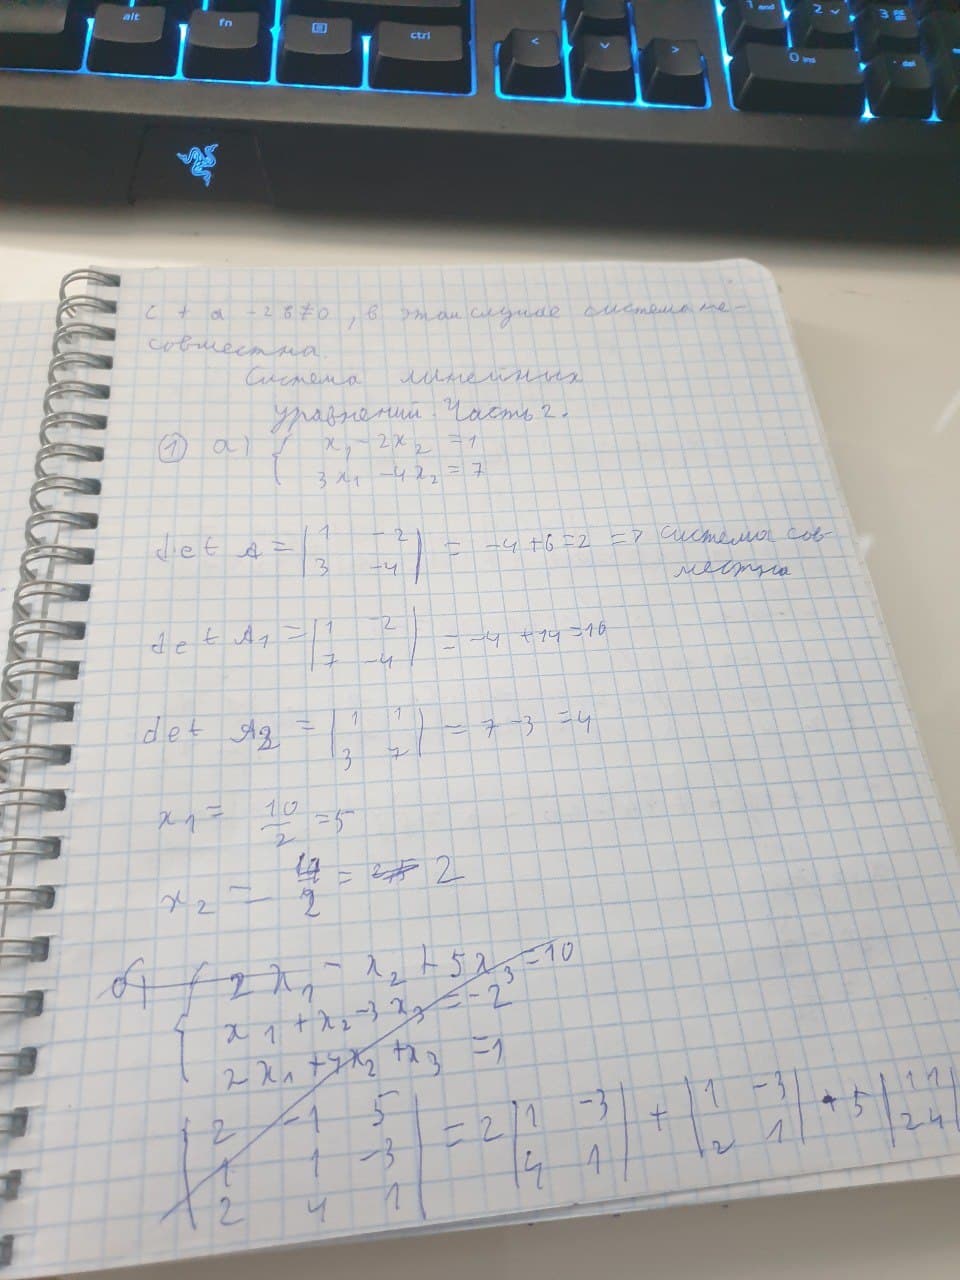 alt fn ctrl < ∨ > 1 end 2 ∨ 3 0 ins . del
c + a - 2b ≠ 0, в этом случае система не-
совместна.
Система линейных
уравнений. Часть 2.
① а) { x₁ - 2x₂ = 1
3x₁ - 4x₂ = 7
det A = | 1 -2 | = -4+6=2 => система сов-
| 3 -4 | местна
det A₁ = | 1 -2 | = -4 +14=10
| 7 -4 |
det A₂ = | 1 1 | = 7-3 =4
| 3 7 |
x₁ = 10/2 = 5
x₂ = 4/2 = 2
б) { 2x₁ - x₂ + 5x₃ = 10
x₁ + x₂ - 3x₃ = -2
2x₁ + 4x₂ + x₃ = 1
| 2 -1 5 | = 2 | 1 -3 | + | 1 -3 | + 5 | 1 1 |
| 1 1 -3 | | 4 1 | | 2 1 | | 2 4 |
| 2 4 1 |